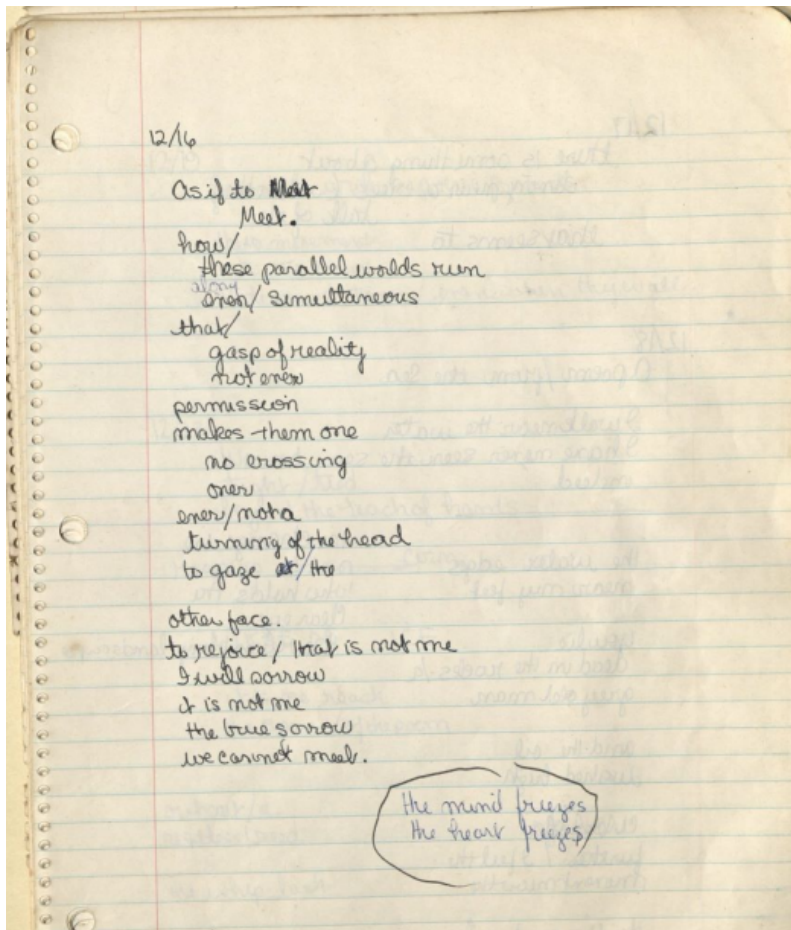 12/16
As if to
Meet.
how/
these parallel worlds run
along
even/ simultaneous
that/
gasp of reality
not even
permission
makes them one
no crossing
over
ever/not a
turning of the head
to gaze at/the
other face.
to rejoice/ that is not me
I will sorrow
it is not me
the true sorrow
we cannot meet.
the mind freezes
the heart freezes/